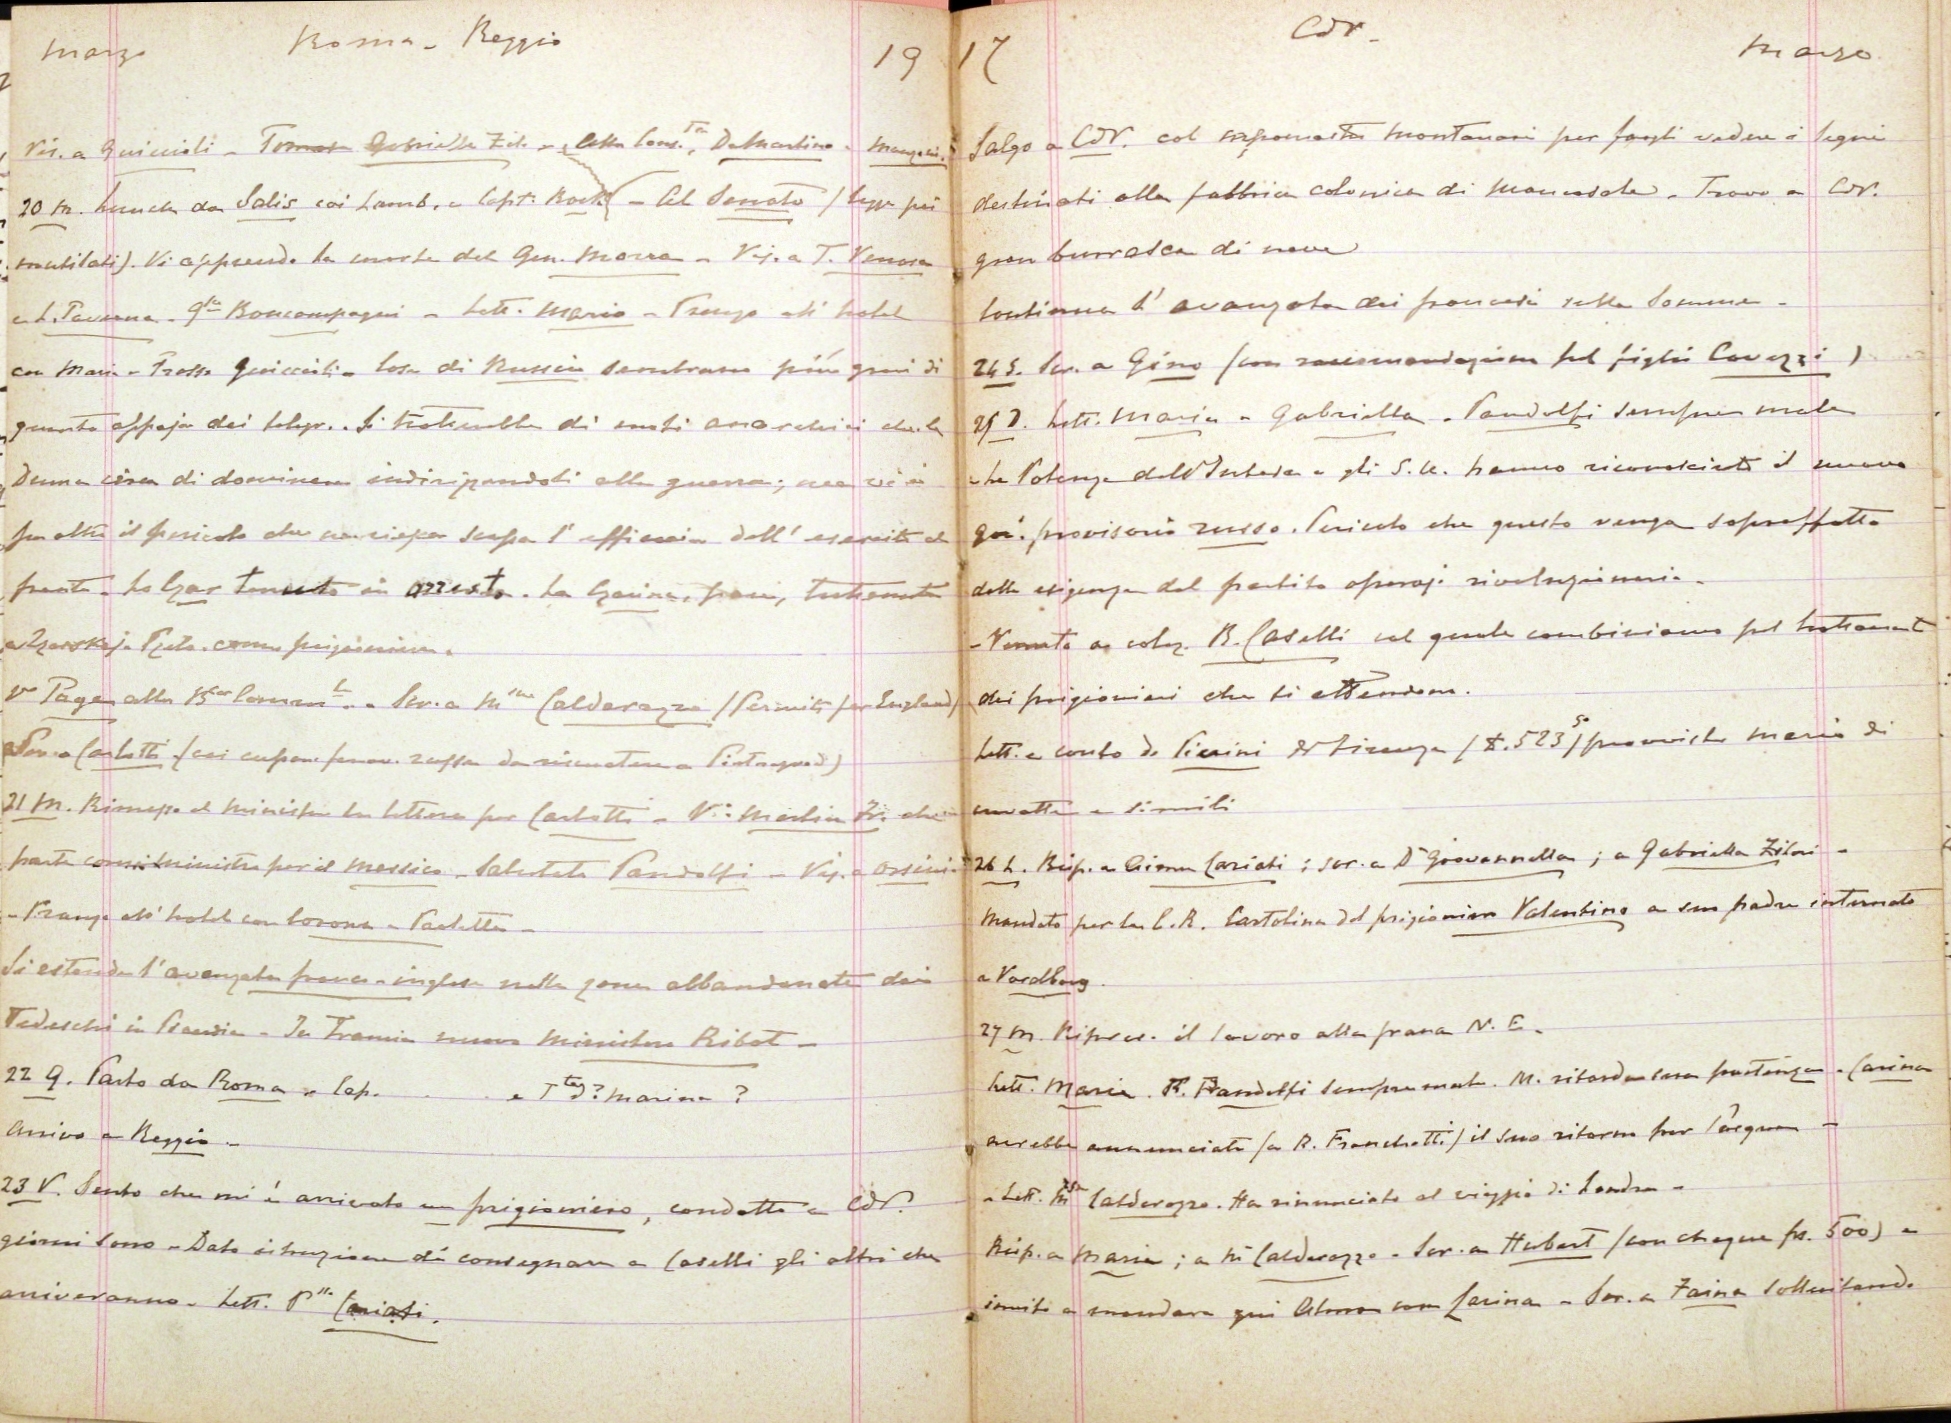 Marzo Roma - Reggio 19
Vis. a Guiccioli - Gabriella Zil. - DeMartino -
20 M. Lunch da Salis coi Lamb. e Capt. - Al Senato / legge pei
mutilati). Vi apprendo la morte del Gen. Morra - Vis. a T. Venosa
e L. Taverna - Boncompagni - Lett. Mario - Pranzo all' hotel
con - Presso Guiccioli - Cose di Russia sembrano più gravi di
quanto appaja dai telegr. . Si tratterebbe di moti anarchici che la
Duma cerca di dominare indirizzandoli alla guerra; ma vi è
per altro il pericolo che ne scapa l' efficacia dell' esercito al
fronte - Lo Czar tenuto in arresto. La Czarina, pare, trattenuta
a Czarskoj. come prigioniera.
Page alla Comm - Scr. a Calderazzo (Permit for England)
Carlotti russa da riscuotere a Pietrograd)
21 M. Rimesso al Ministero la lettera per Carlotti - V. : Merlin che
parte ministro per il Messico - Salutato Pandolfi - Vis. a Orsini
- Pranzo all' hotel con Corona - Pasletta -
Si estende l' avanzata franco-inglese nella zona abbandonata dai
Tedeschi in - In Francia nuovo ministero Ribot -
22 G. Parto da Roma - Cap. . . . e T ? Marina ?
Arrivo a Reggio -
23 V. Sento che mi è arrivato un prigioniero, condotto a CdV.
giorni sono - Dato istruzione di consegnare a Caselli gli altri che
arriveranno - Lett. Cariati.
17 CdV - Marzo
Salgo a CdV. col capomastro Montanari per fargli vedere i legni
destinati alla fabbrica colonica di - Trovo a CdV.
gran burrasca di neve
Continua l' avanzata dei francesi sulla Somme -
24 S. Scr. a Gino (con raccomandazione pel figlio Cavazzi)
25 D. Lett. Maria - Gabriella - Pandolfi sempre male
- Le Potenze dell' Intesa e gli S. U. hanno riconosciuto il nuovo
gov. provisorio russo. Pericolo che questo venga sopraffatto
dalle esigenze del partito operajo rivoluzionario -
- Venuto a colaz. B. Caselli col quale combiniamo pel trattament
dei prigionieri che si attendono.
Lett. e conto di Pierini di Firenze (£. 523 50) provviste
e simili
26 L. Risp. a Cariati ; scr. a Dr Giovannella ; a Gabriella Zileri -
Mandato per la C. R. Cartolina del prigioniero Valentino a suo padre internato
a Vordborg.
27 M. Ripres. il lavoro alla frana N. E.
Lett. Maria. Pandolfi sempre male. M. ritarda sua partenza - Carina
avrebbe annunciato (a R. Franchetti) il suo ritorno per Pasqua -
- Lett. Calderazzo. Ha rinunciato al viaggio di Londra -
Risp. a Maria ; a Calderazzo - Scr. a Hubert (con cheque fr. 500) e
invito a mandare qui con Carina - Scr. a Faina sollecitando